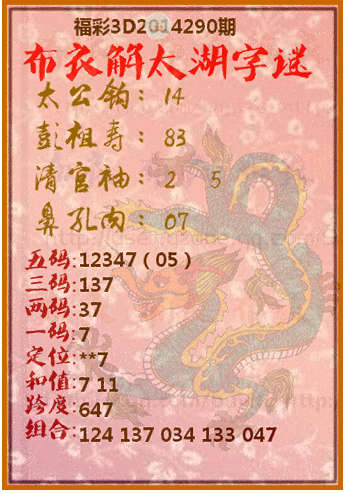 福彩3D2014290期
布衣解太湖字谜
太公钩：14
彭祖寿：83
清官袖：2 5
鼻孔肉：07
五码:12347（05）
三码:137
两码:37
一码:7
定位:**7
和值:7 11
跨度:647
组合:124 137 034 133 047